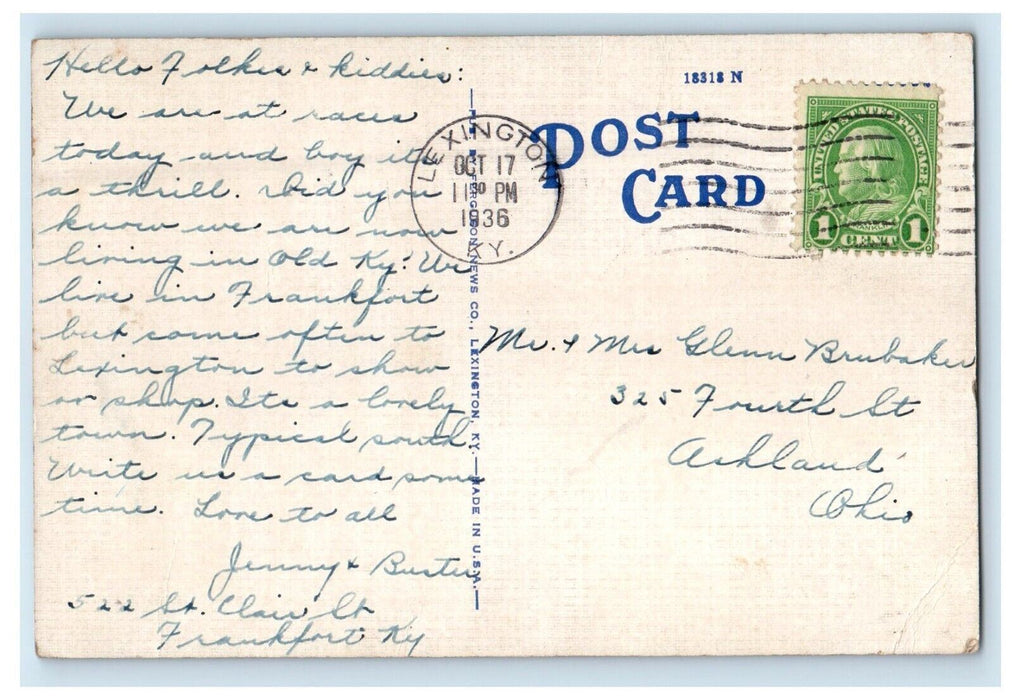 Hello Folkes & kiddies:
We are at races
today and boy it
a thrill. Did you
know we are now
living in Old Ky? We
live in Frankfort
but come often to
Lexington to show
or shop. Its a lovely
town. Typical south
Write us a card some
time. Love to all
Jenny & Buster
522 St. Clair St
Frankfort Ky
LEXINGTON
OCT 17
11 30 PM
1936
KY.
FERGUSON NEWS CO., LEXINGTON, KY.—MADE IN U.S.A.
18318 N
POST
CARD
UNITED STATES POSTAGE
FRANKLIN
1 CENT 1
Mr. & Mrs Glenn Brubaker
325 Fourth St
Ashland
Ohio